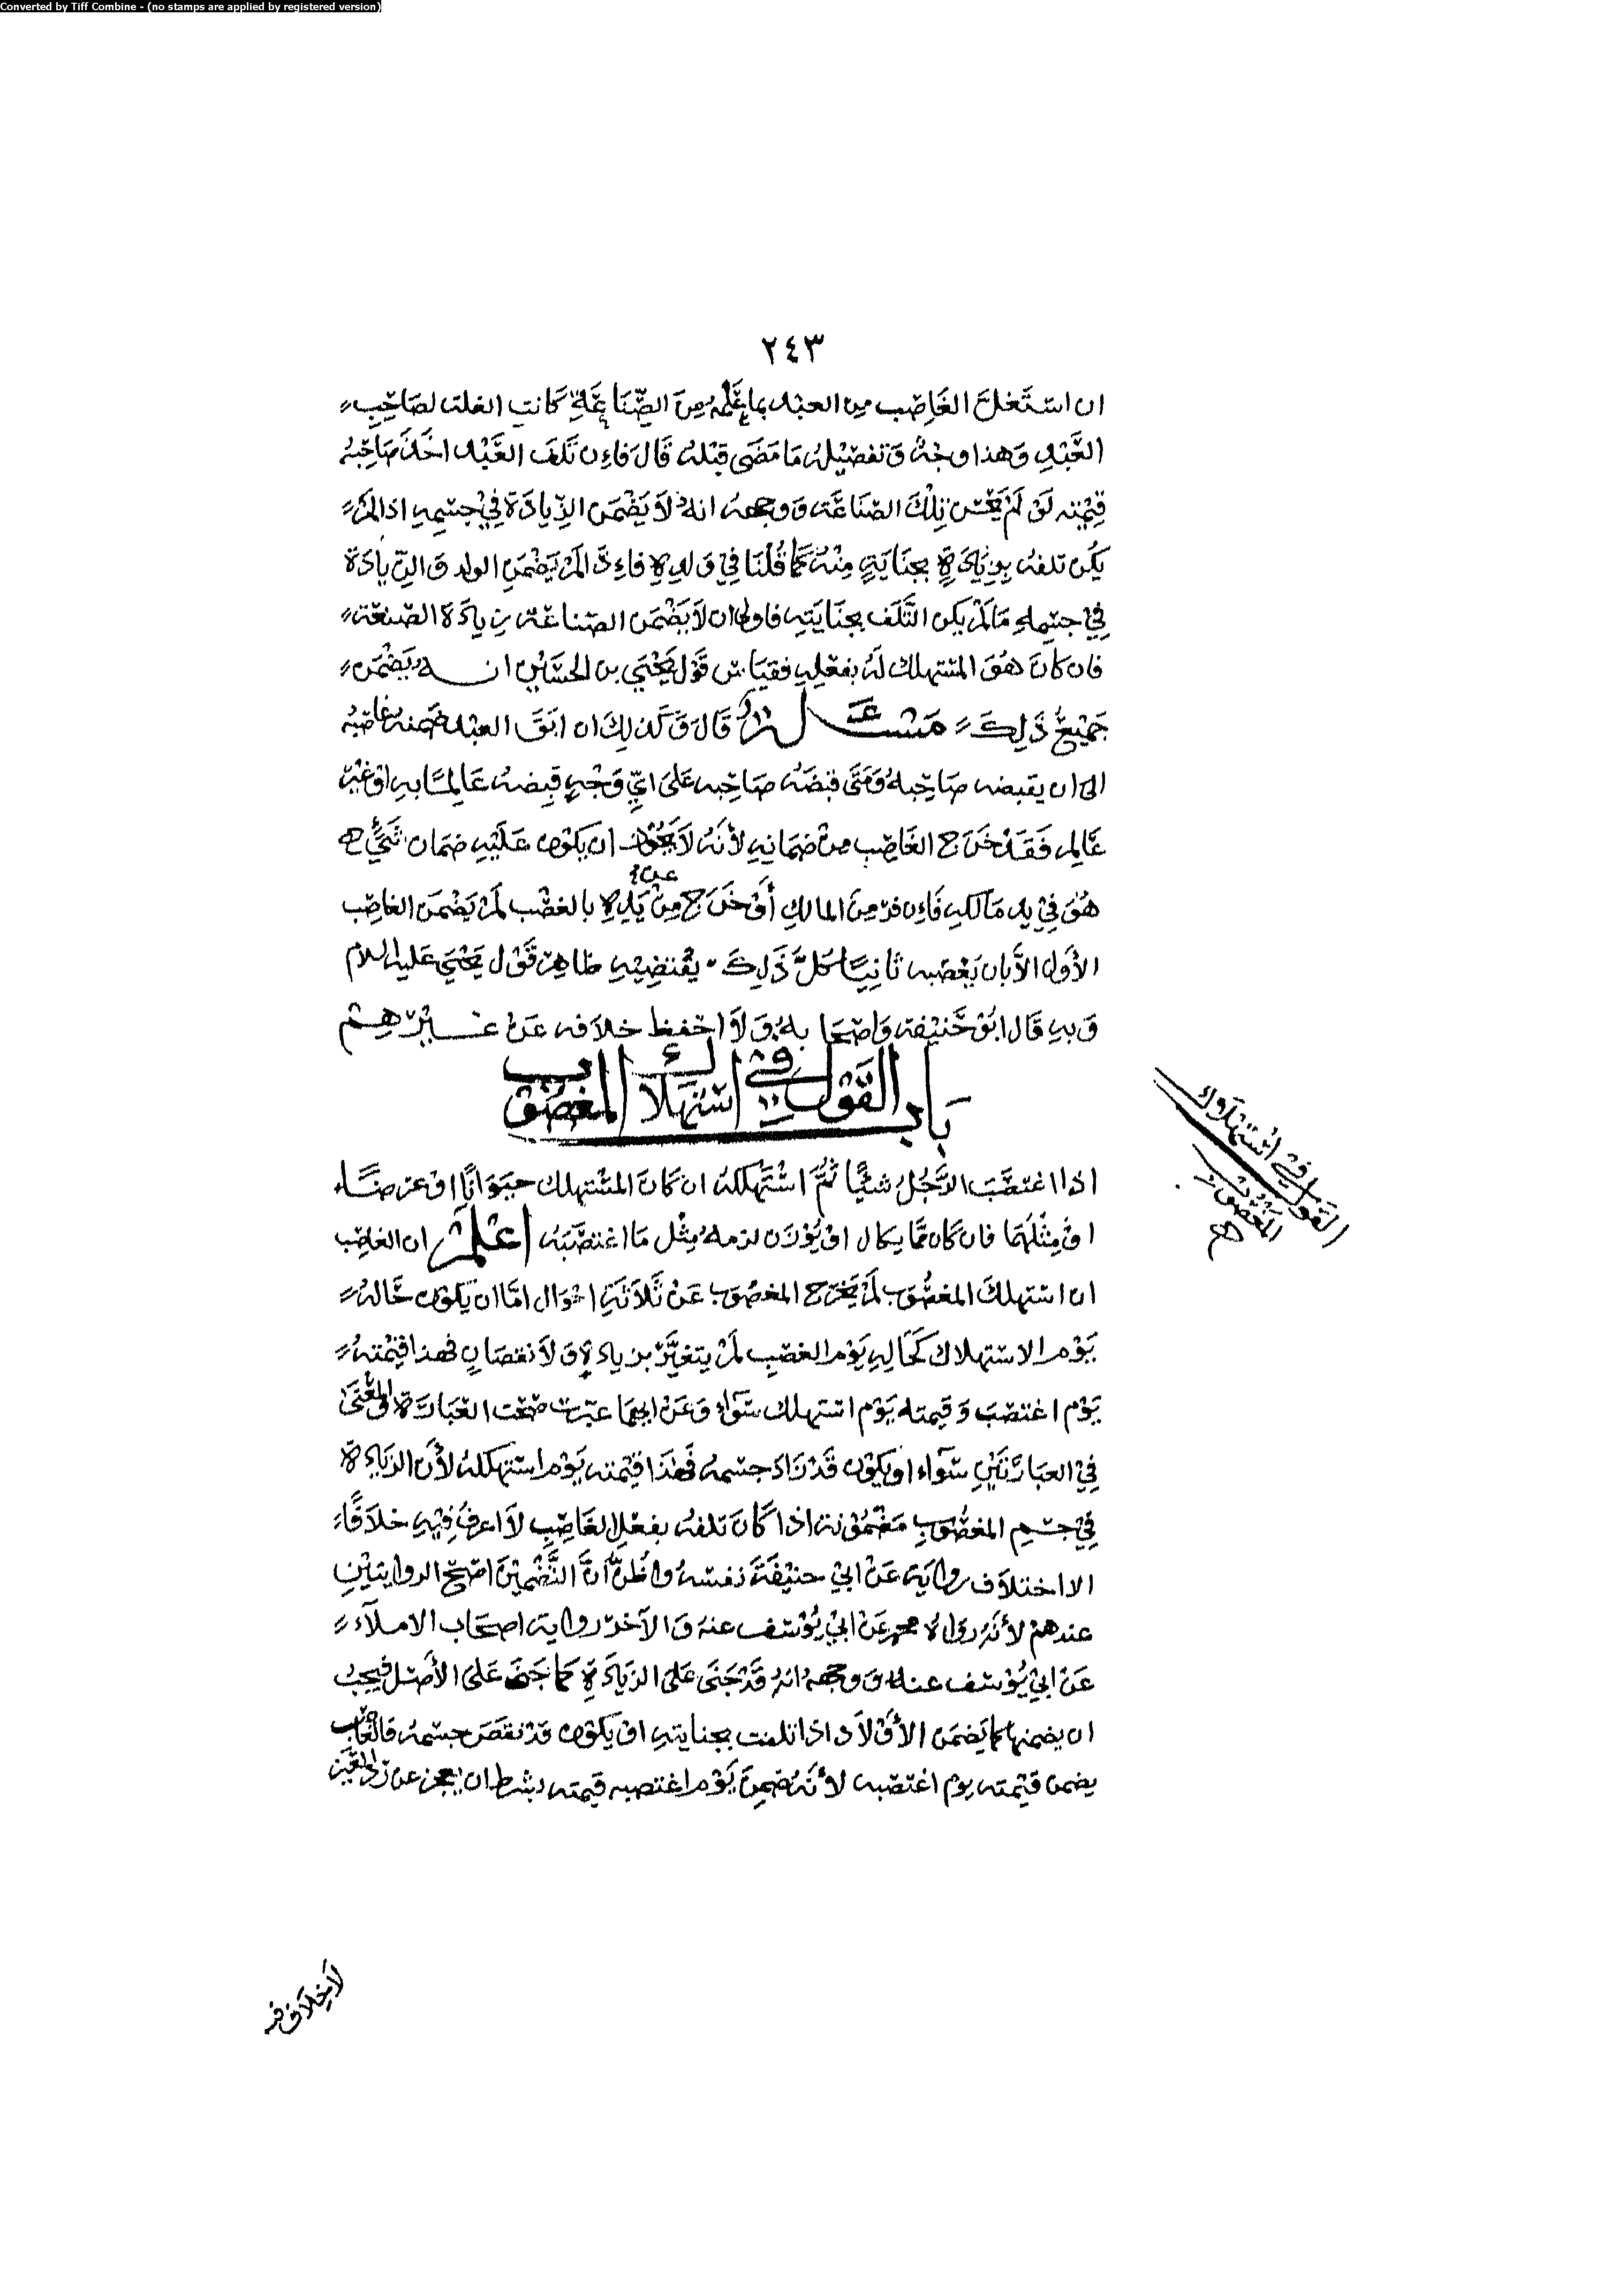 Converted by Tiff Combine - (no stamps are applied by registered version)
٢٤٣
ان استغل الغاصب من العبد بما علمه من الصناعة غلة كانت الغلة لصاحب
العبد وهذا وجه وتفصيله ما مضى قبله قال فان تلف العبد اخذ صاحبه
قيمته لو لم يحسن تلك الصناعة ووجهه انه لا يضمن الزيادة في جسمه اذا لم
يكن تلفه بزيادة بجناية منه كما قلنا في ولده فاذا لم يضمن الولد والزيادة
في جسمه ما لم يكن التلف بجنايته فاولى ان لا يضمن الصناعة زيادة الصنعة
فان كان هو المستهلك له بفعله فقياس قول يحيى بن الحسين انه يضمن
جميع ذلك مسئلة قال وكذلك ان ابق العبد ضمنه غاصبه
الى ان يقبضه صاحبه ومتى قبضه صاحبه على اي وجه قبضه عالما به او غير
عالم فقد خرج الغاصب من ضمانه لأنه لا يجوز ان يكون عليه ضمان شيء
هو في يد مالكه فان فر من المالك أو خرج من يده بالغصب لم يضمن الغاصب
الأول الا بان يغصبه ثانيا كل ذلك يقتضيه ظاهر قول يحيى عليه السلام
وبه قال ابو حنيفة واصحابه ولا احفظ خلافه عن غيرهم
باب القول في استهلاك المغصوب
القول في استهلاك
المغصوب
اذا اغتصب الرجل شيئا ثم استهلكه ان كان المستهلك حيوانا او عرضا
او مثلهما فان كان مما يكال او يوزن لزمه مثل ما اغتصبه اعلم ان الغاصب
ان استهلك المغصوب لم يخرج المغصوب عن ثلاثة احوال اما ان يكون حاله
يوم الاستهلاك كحاله يوم الغصب لم يتغير بزيادة ولا نقصان فهذا قيمته
يوم اغتصب وقيمته يوم استهلك سواء وعن ايهما عبرت صحت العبارة والمعنى
في العبارتين سواء او يكون قد زاد جسمه فهذا قيمته يوم استهلكه لأن الزيادة
في جسم المغصوب مضمونة اذا كان تلفه بفعل الغاصب لا اعرف فيه خلافا
الا اختلاف رواية عن ابي حنيفة نفسه واظن ان التضمين اصح الروايتين
عندهم لأنه رواه محمد عن ابي يوسف عنه والآخر رواية اصحاب الاملاء
عن ابي يوسف عنه ووجهه انه قد جنى على الزيادة كما جنى على الأصل فيجب
ان يضمنها كما يضمن الأولاد اذا تلفت بجنايته او يكون قد نقص جسمه فالغاصب
يضمن قيمته يوم اغتصبه لأنه ضمن يوم اغتصبه قيمته بشرط ان يعجز عن رد العين
لا خلاف فيه